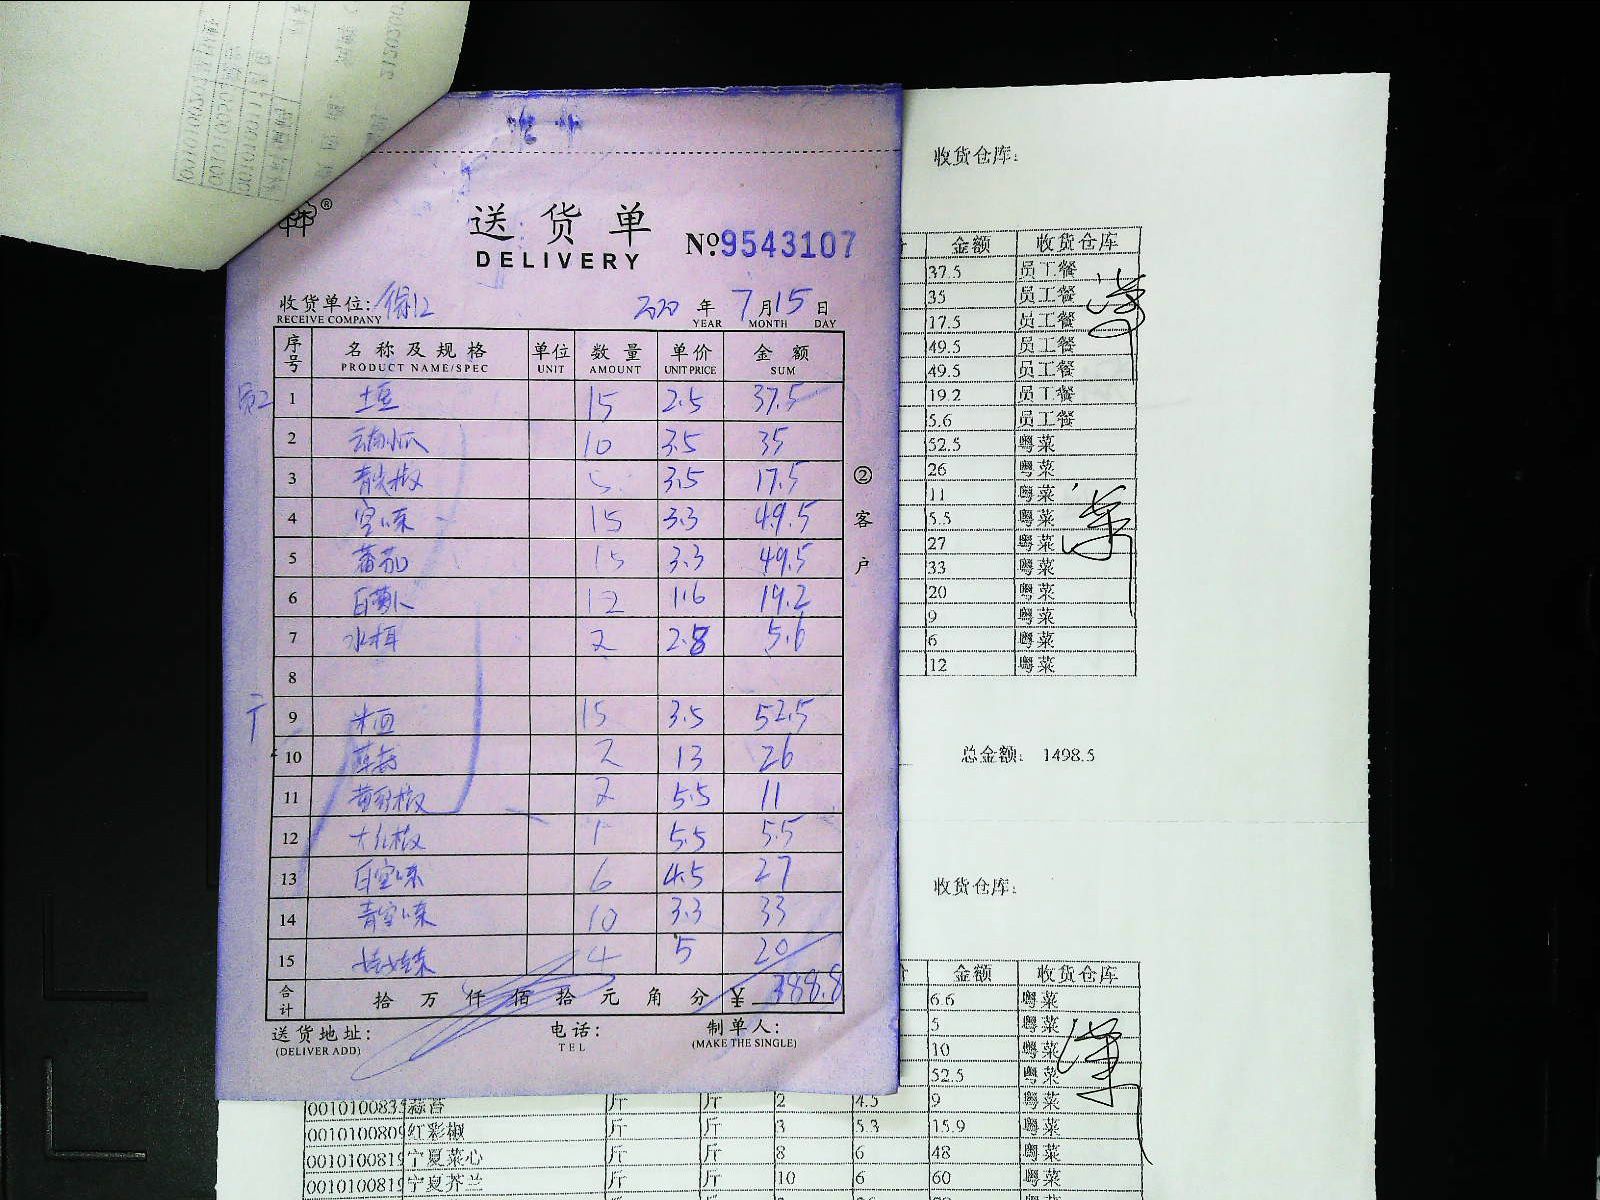 送货单
DELIVERY
№9543107
收货单位:徐汇
RECEIVE COMPANY
2020年7月15日
YEAR MONTH DAY
序号 名称及规格 单位 数量 单价 金额
PRODUCT NAME/SPEC UNIT AMOUNT UNIT PRICE SUM
1 土豆 15 2.5 37.5
2 云南小瓜 10 3.5 35
3 青尖椒 5 3.5 17.5
4 15 3.3 49.5
5 蕃茄 15 3.3 49.5
6 白萝卜 12 1.6 19.2
7 水 2 2.8 5.6
8
9 15 3.5 52.5
10 2 13 26
11 黄彩椒 2 5.5 11
12 大红椒 1 5.5 5.5
13 6 4.5 27
14 10 3.3 33
15 4 5 20
合计 拾万仟佰拾元角分 ¥ 388.8
送货地址:
(DELIVER ADD)
电话:
TEL
制单人:
(MAKE THE SINGLE)
②客户
收货仓库:
金额 收货仓库
37.5 员工餐
35 员工餐
17.5 员工餐
49.5 员工餐
49.5 员工餐
19.2 员工餐
5.6 员工餐
52.5 粤菜
26 粤菜
11 粤菜
5.5 粤菜
27 粤菜
33 粤菜
20 粤菜
9 粤菜
6 粤菜
12 粤菜
总金额: 1498.5
收货仓库:
金额 收货仓库
6.6 粤菜
5 粤菜
10 粤菜
52.5 粤菜
001010083 蒜苔 斤 斤 2 4.5 9 粤菜
001010080 红彩椒 斤 斤 3 5.3 15.9 粤菜
001010081 宁夏菜心 斤 斤 8 6 48 粤菜
001010081 宁夏芥兰 斤 斤 10 6 60 粤菜